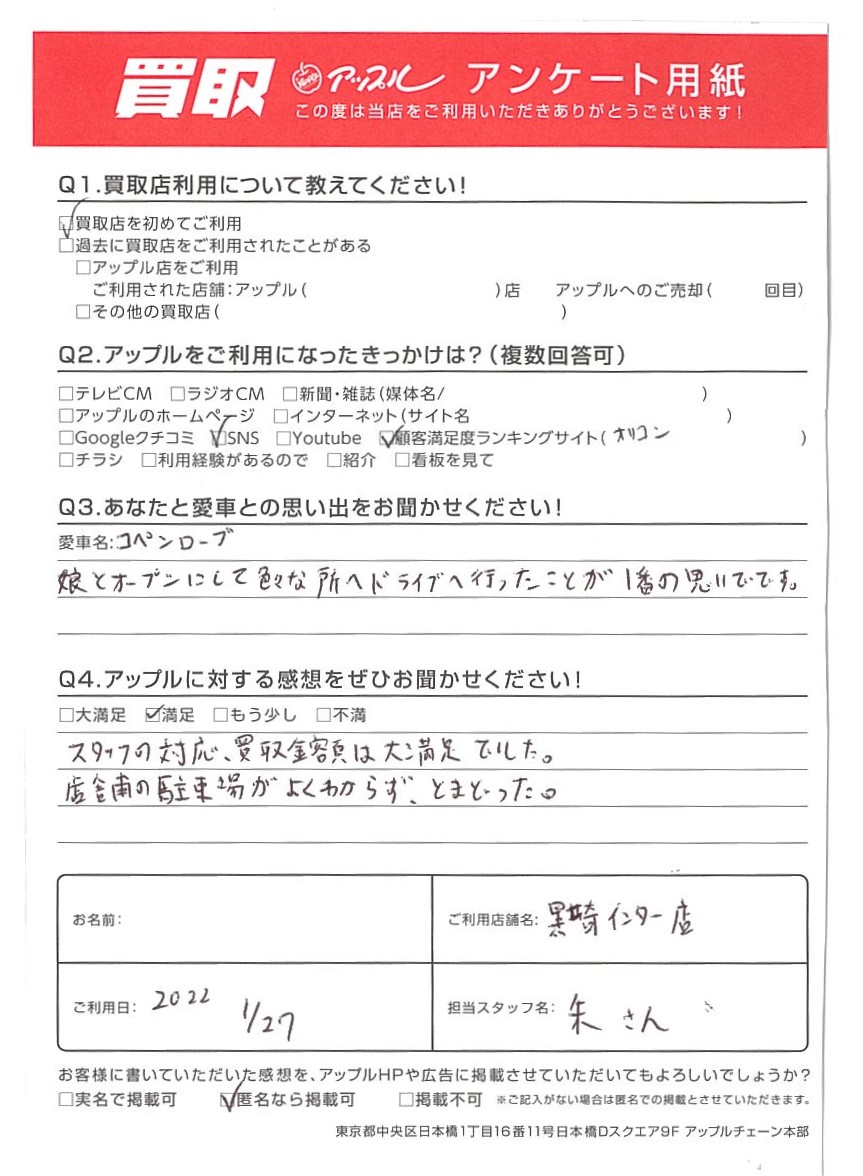 買取 アップル アンケート用紙
この度は当店をご利用いただきありがとうございます!
Q1.買取店利用について教えてください!
☑買取店を初めてご利用
□過去に買取店をご利用されたことがある
□アップル店をご利用
ご利用された店舗:アップル( )店 アップルへのご売却( 回目)
□その他の買取店( )
Q2.アップルをご利用になったきっかけは?(複数回答可)
□テレビCM □ラジオCM □新聞・雑誌(媒体名/ )
□アップルのホームページ □インターネット(サイト名 )
□Googleクチコミ ☑SNS □Youtube ☑顧客満足度ランキングサイト(オリコン )
□チラシ □利用経験があるので □紹介 □看板を見て
Q3.あなたと愛車との思い出をお聞かせください!
愛車名:コペンローブ
娘とオープンにして色々な所へドライブへ行ったことが1番の思いでです。
Q4.アップルに対する感想をぜひお聞かせください!
□大満足 ☑満足 □もう少し □不満
スタッフの対応、買取金額は大満足でした。
店舗の駐車場がよくわからず、とまどった。
お名前:
ご利用店舗名:黒埼インター店
ご利用日:2022 1/27
担当スタッフ名:朱さん
お客様に書いていただいた感想を、アップルHPや広告に掲載させていただいてもよろしいでしょうか?
□実名で掲載可 ☑匿名なら掲載可 □掲載不可 ※ご記入がない場合は匿名での掲載とさせていただきます。
東京都中央区日本橋1丁目16番11号日本橋Dスクエア9F アップルチェーン本部